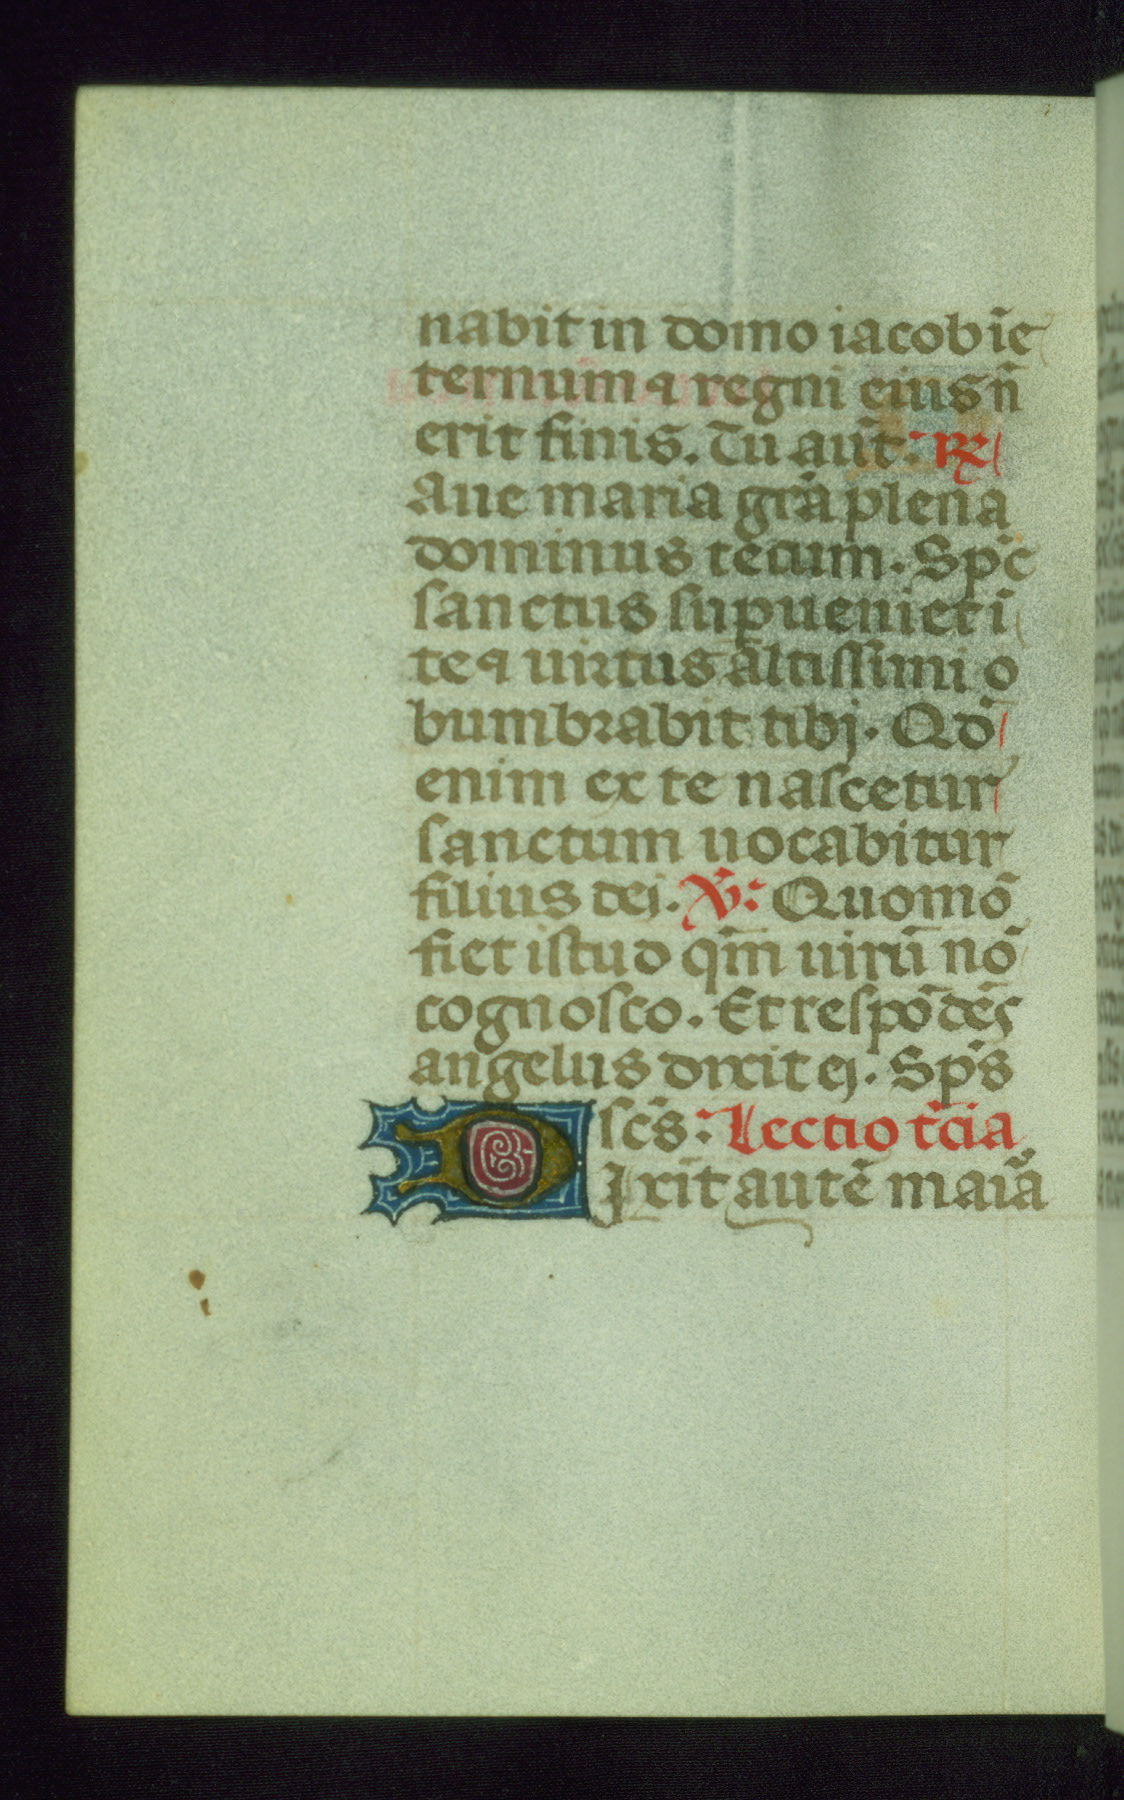 nabit in domo iacob īe
ternum ⁊ regni eius n̄
erit finis. Tu aūt. ℟
Aue maria grā plena
dominus tecum. Sp̄c
sanctus supueniet ī
te ⁊ uirtus altissimi o
bumbrabit tibj. Qd̄
enim ex te nascetur
sanctum uocabitur
filius dej. ℣: Quomō
fiet istud qm̄ uirū nō
cognosco. Et respōdēs
angelus dixit ej. Sp̄s
sc̄s: Lectio t̄cia
Dixit autē maīa